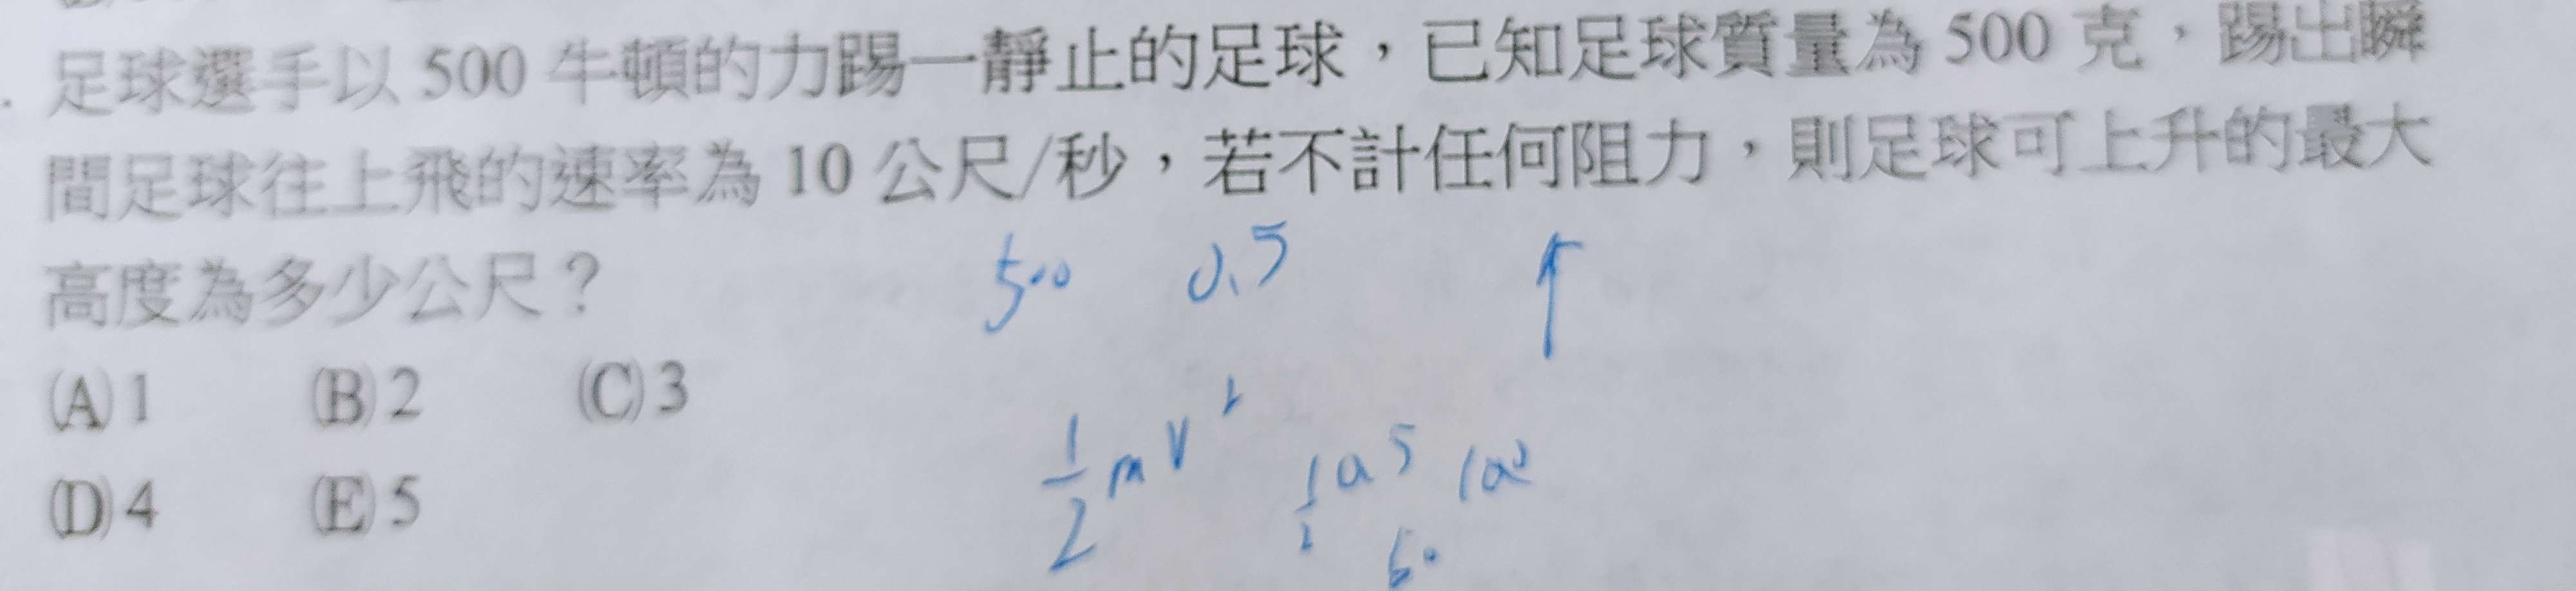 足球選手以 500 牛頓的力踢一靜止的足球，已知足球質量為 500 克，踢出瞬
間足球往上飛的速率為 10 公尺/秒，若不計任何阻力，則足球可上升的最大
高度為多少公尺？
500 0.5
(A) 1 (B) 2 (C) 3
1/2 mv²
(D) 4 (E) 5